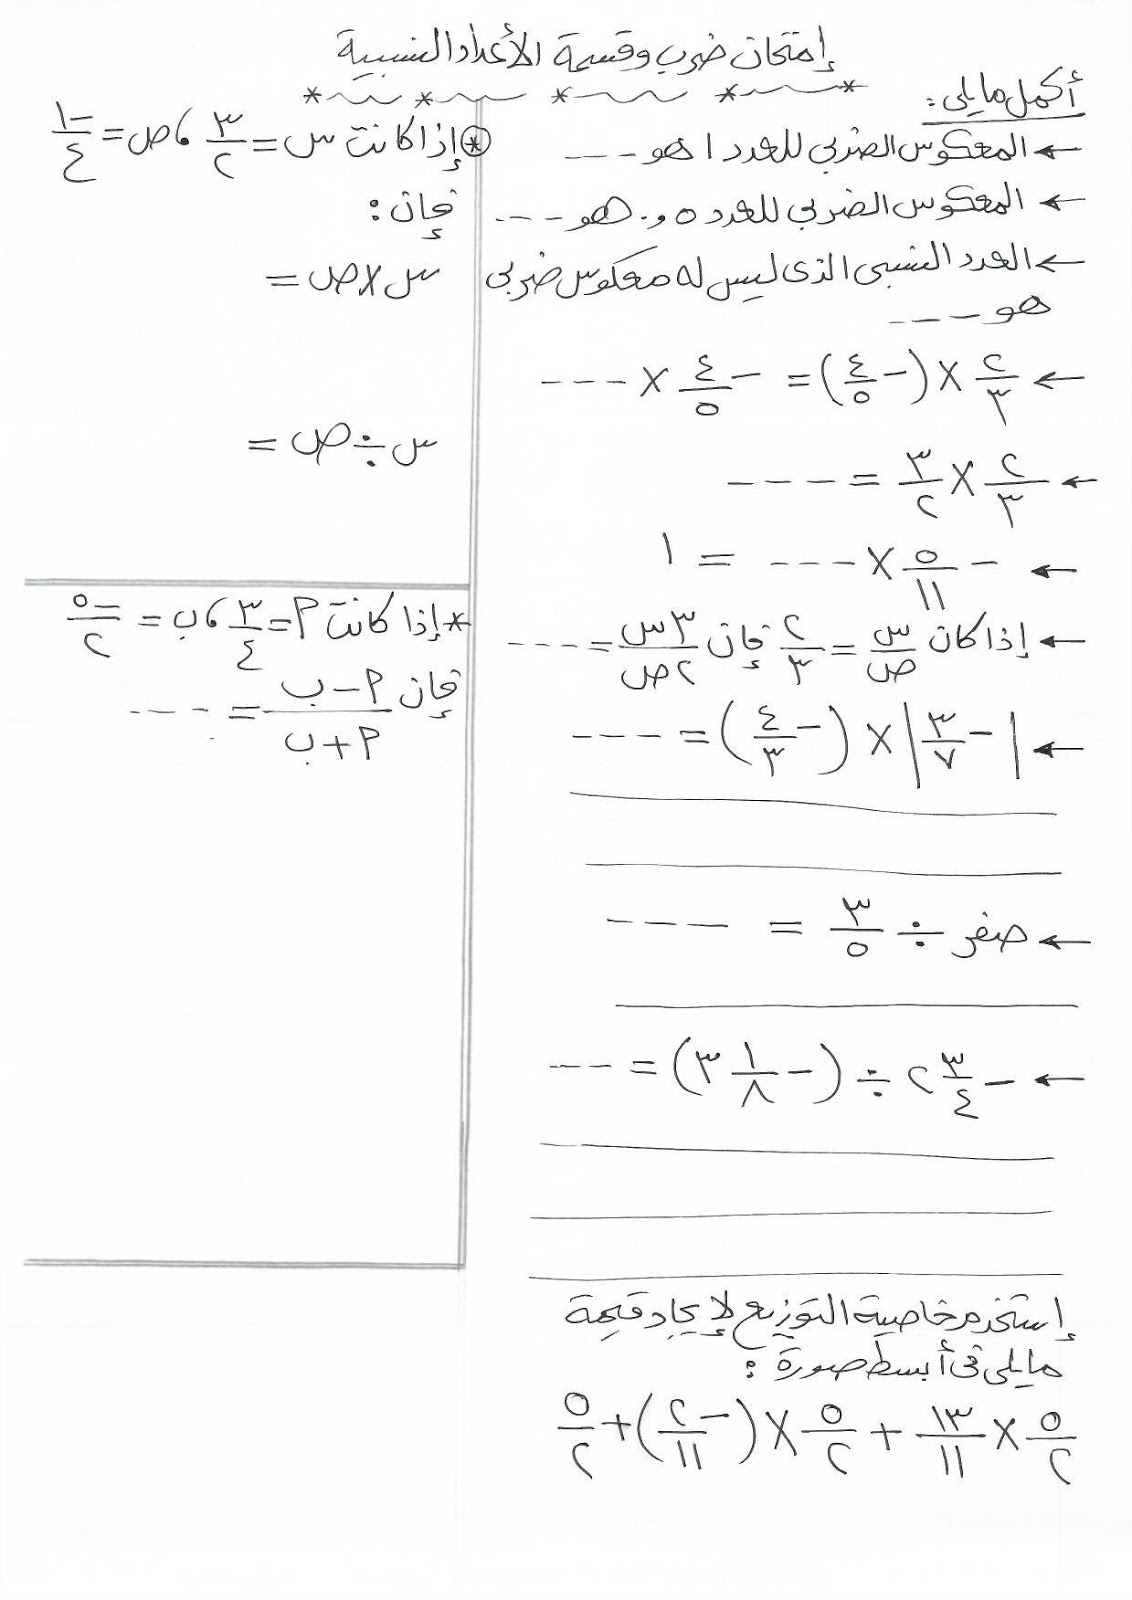 إمتحان ضرب وقسمة الأعداد النسبية
أكمل ما يلى:
← المعكوس الضربى للعدد ١ هو ---
← المعكوس الضربى للعدد ٥و٠ هو ---
← العدد النسبى الذى ليس له معكوس ضربى
هو ---
← ٢/٣ × (-٤/٥) = -٤/٥ × ---
← ٢/٣ × ٣/٢ = ----
← -٥/١١ × --- = ١
← إذا كان س/ص = ٢/٣ فإن ٣س/٢ص = ----
← |-٣/٧| × (-٤/٣) = ---
← صفر ÷ ٣/٥ = ----
← -٢ ٣/٤ ÷ (-٣ ١/٨) = ---
إستخدم خاصية التوزيع لإيجاد قيمة
ما يلى فى أبسط صورة:
٥/٢ × ١٣/١١ + ٥/٢ × (-٢/١١) + ٥/٢
* إذا كانت س = ٣/٢ ، ص = -١/٤
فإن:
س × ص =
س ÷ ص =
* إذا كانت م = ٣/٤ ، ب = -٥/٢
فإن م - ب/م + ب = ---